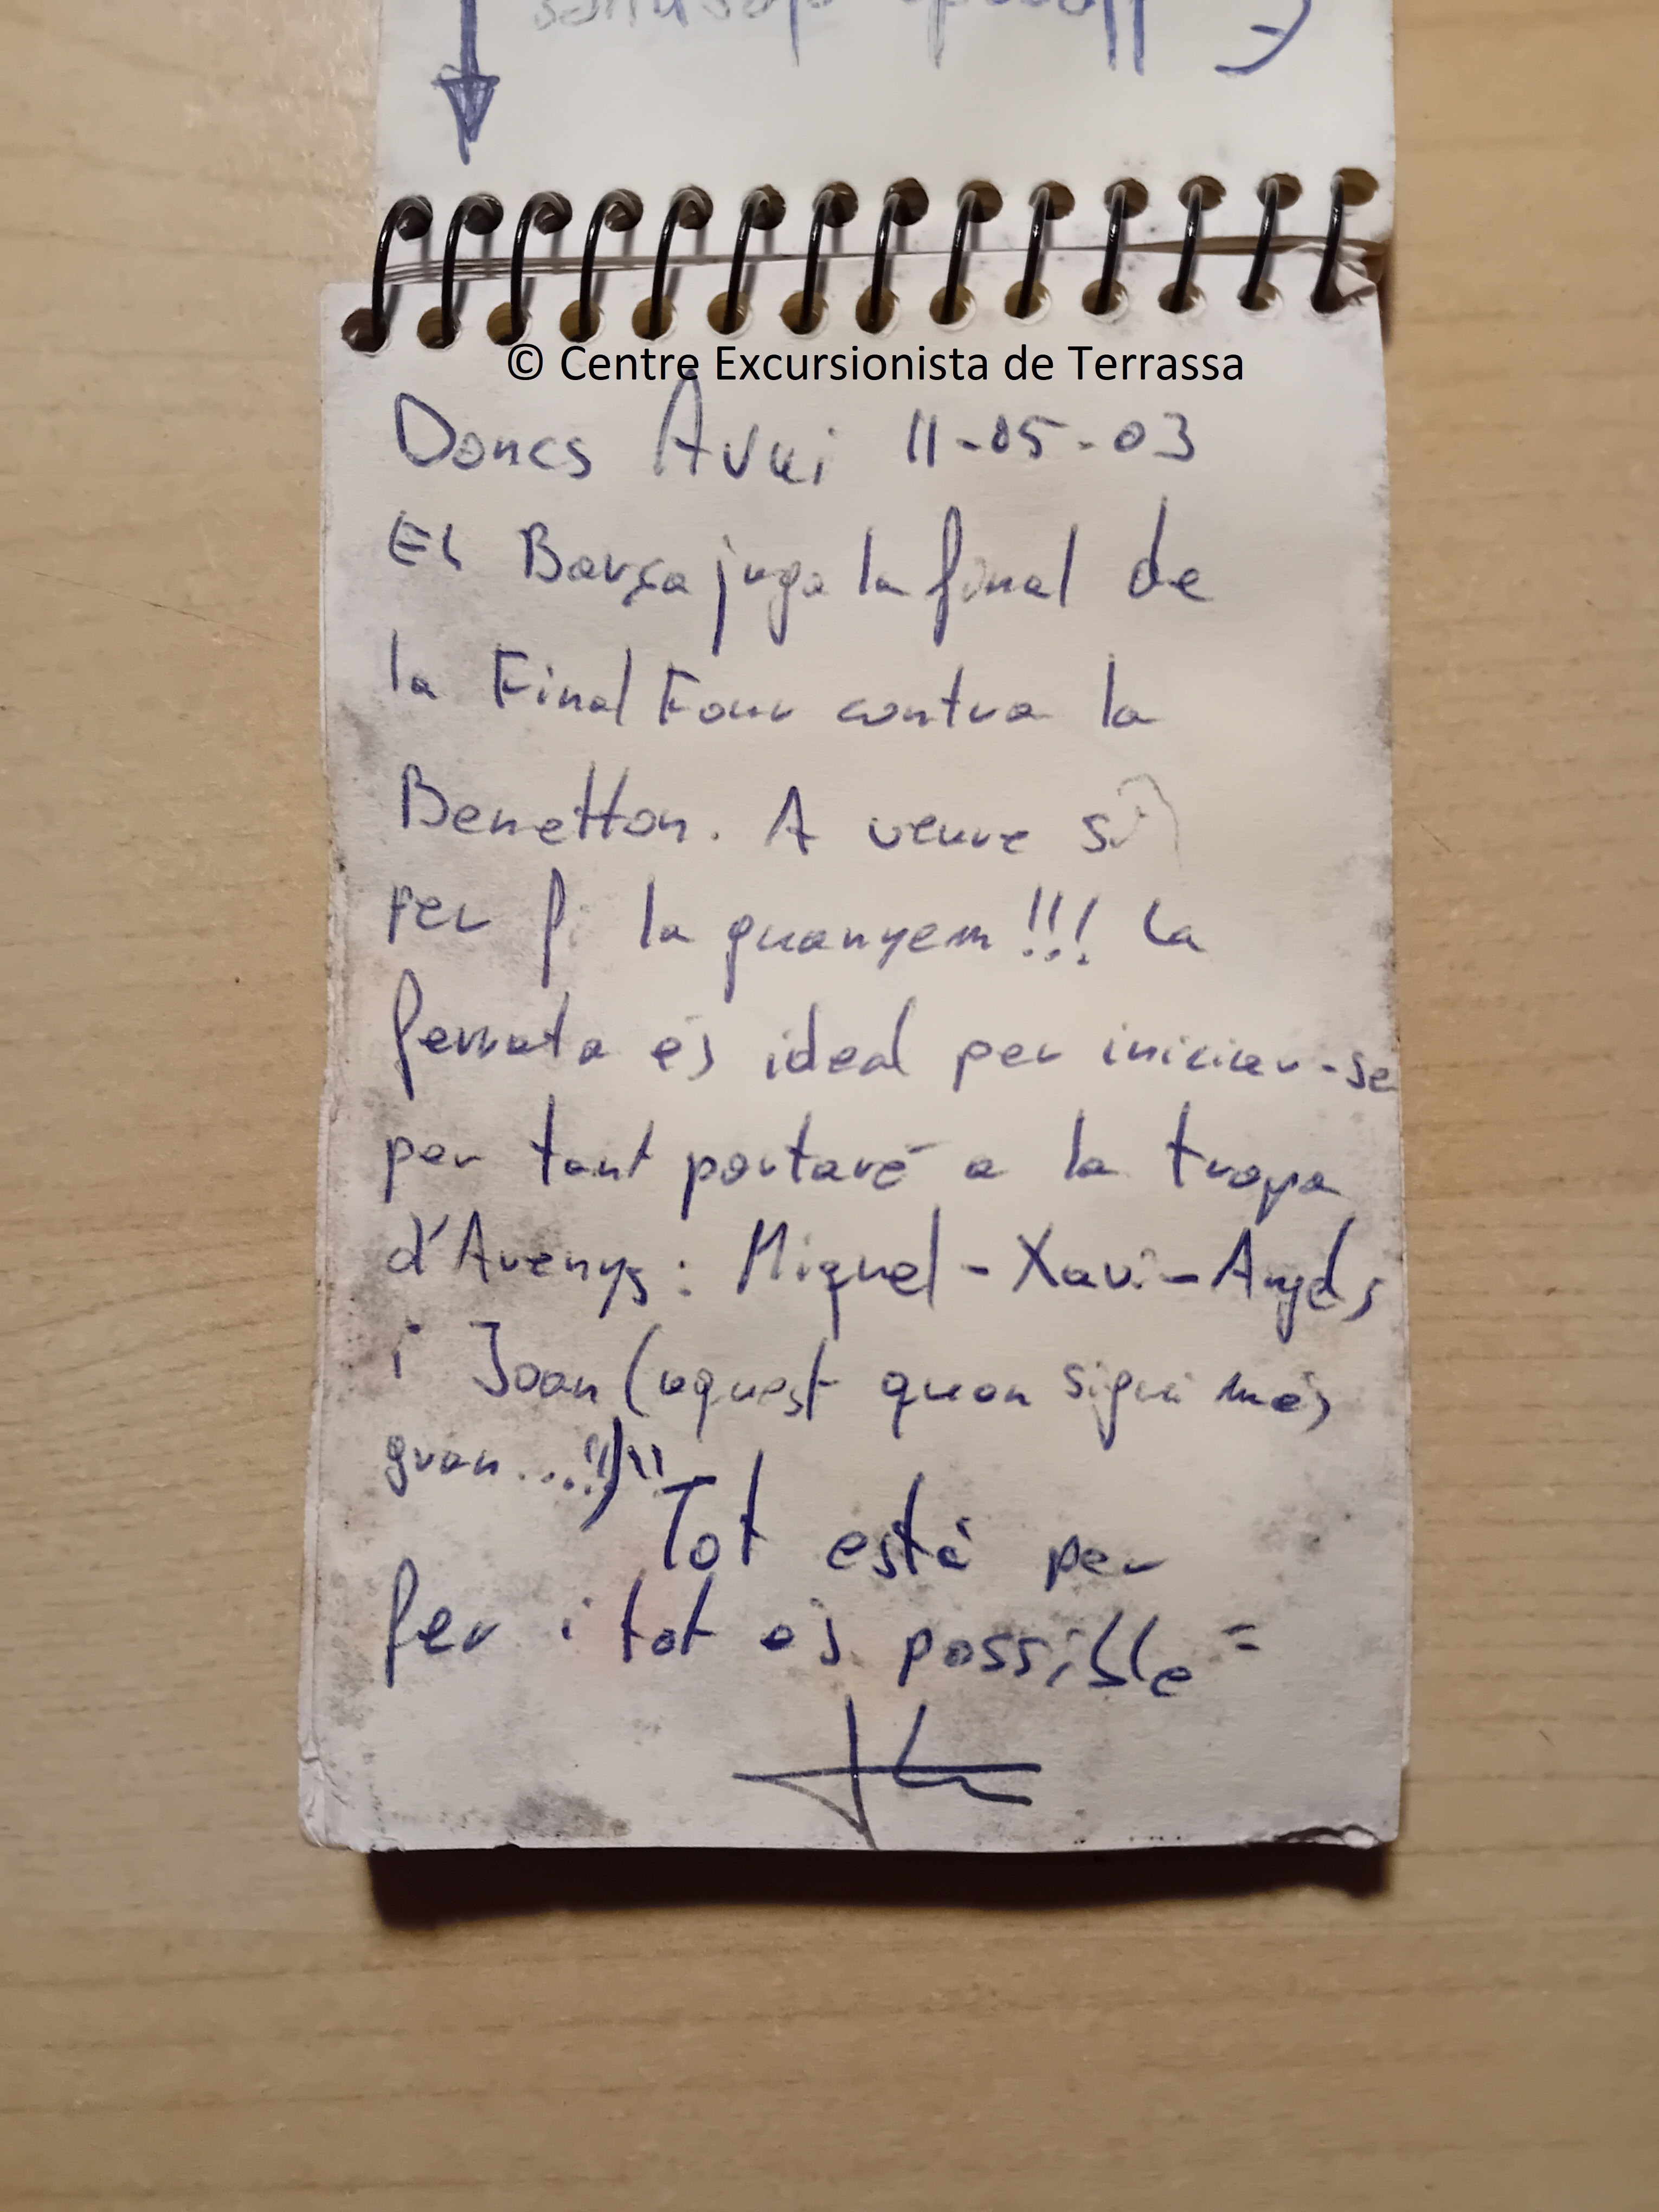 © Centre Excursionista de Terrassa
Doncs Avui 11-05-03
El Barça juga la final de
la Final Four contra la
Benetton. A veure si
per fi la guanyem!!! La
ferrata és ideal per iniciar-se
per tant portaré a la tropa
d'Arenys: Miquel-Xavi-Angels
i Joan (aquest quan sigui més
gran...!!) "Tot està per
fer i tot és possible"